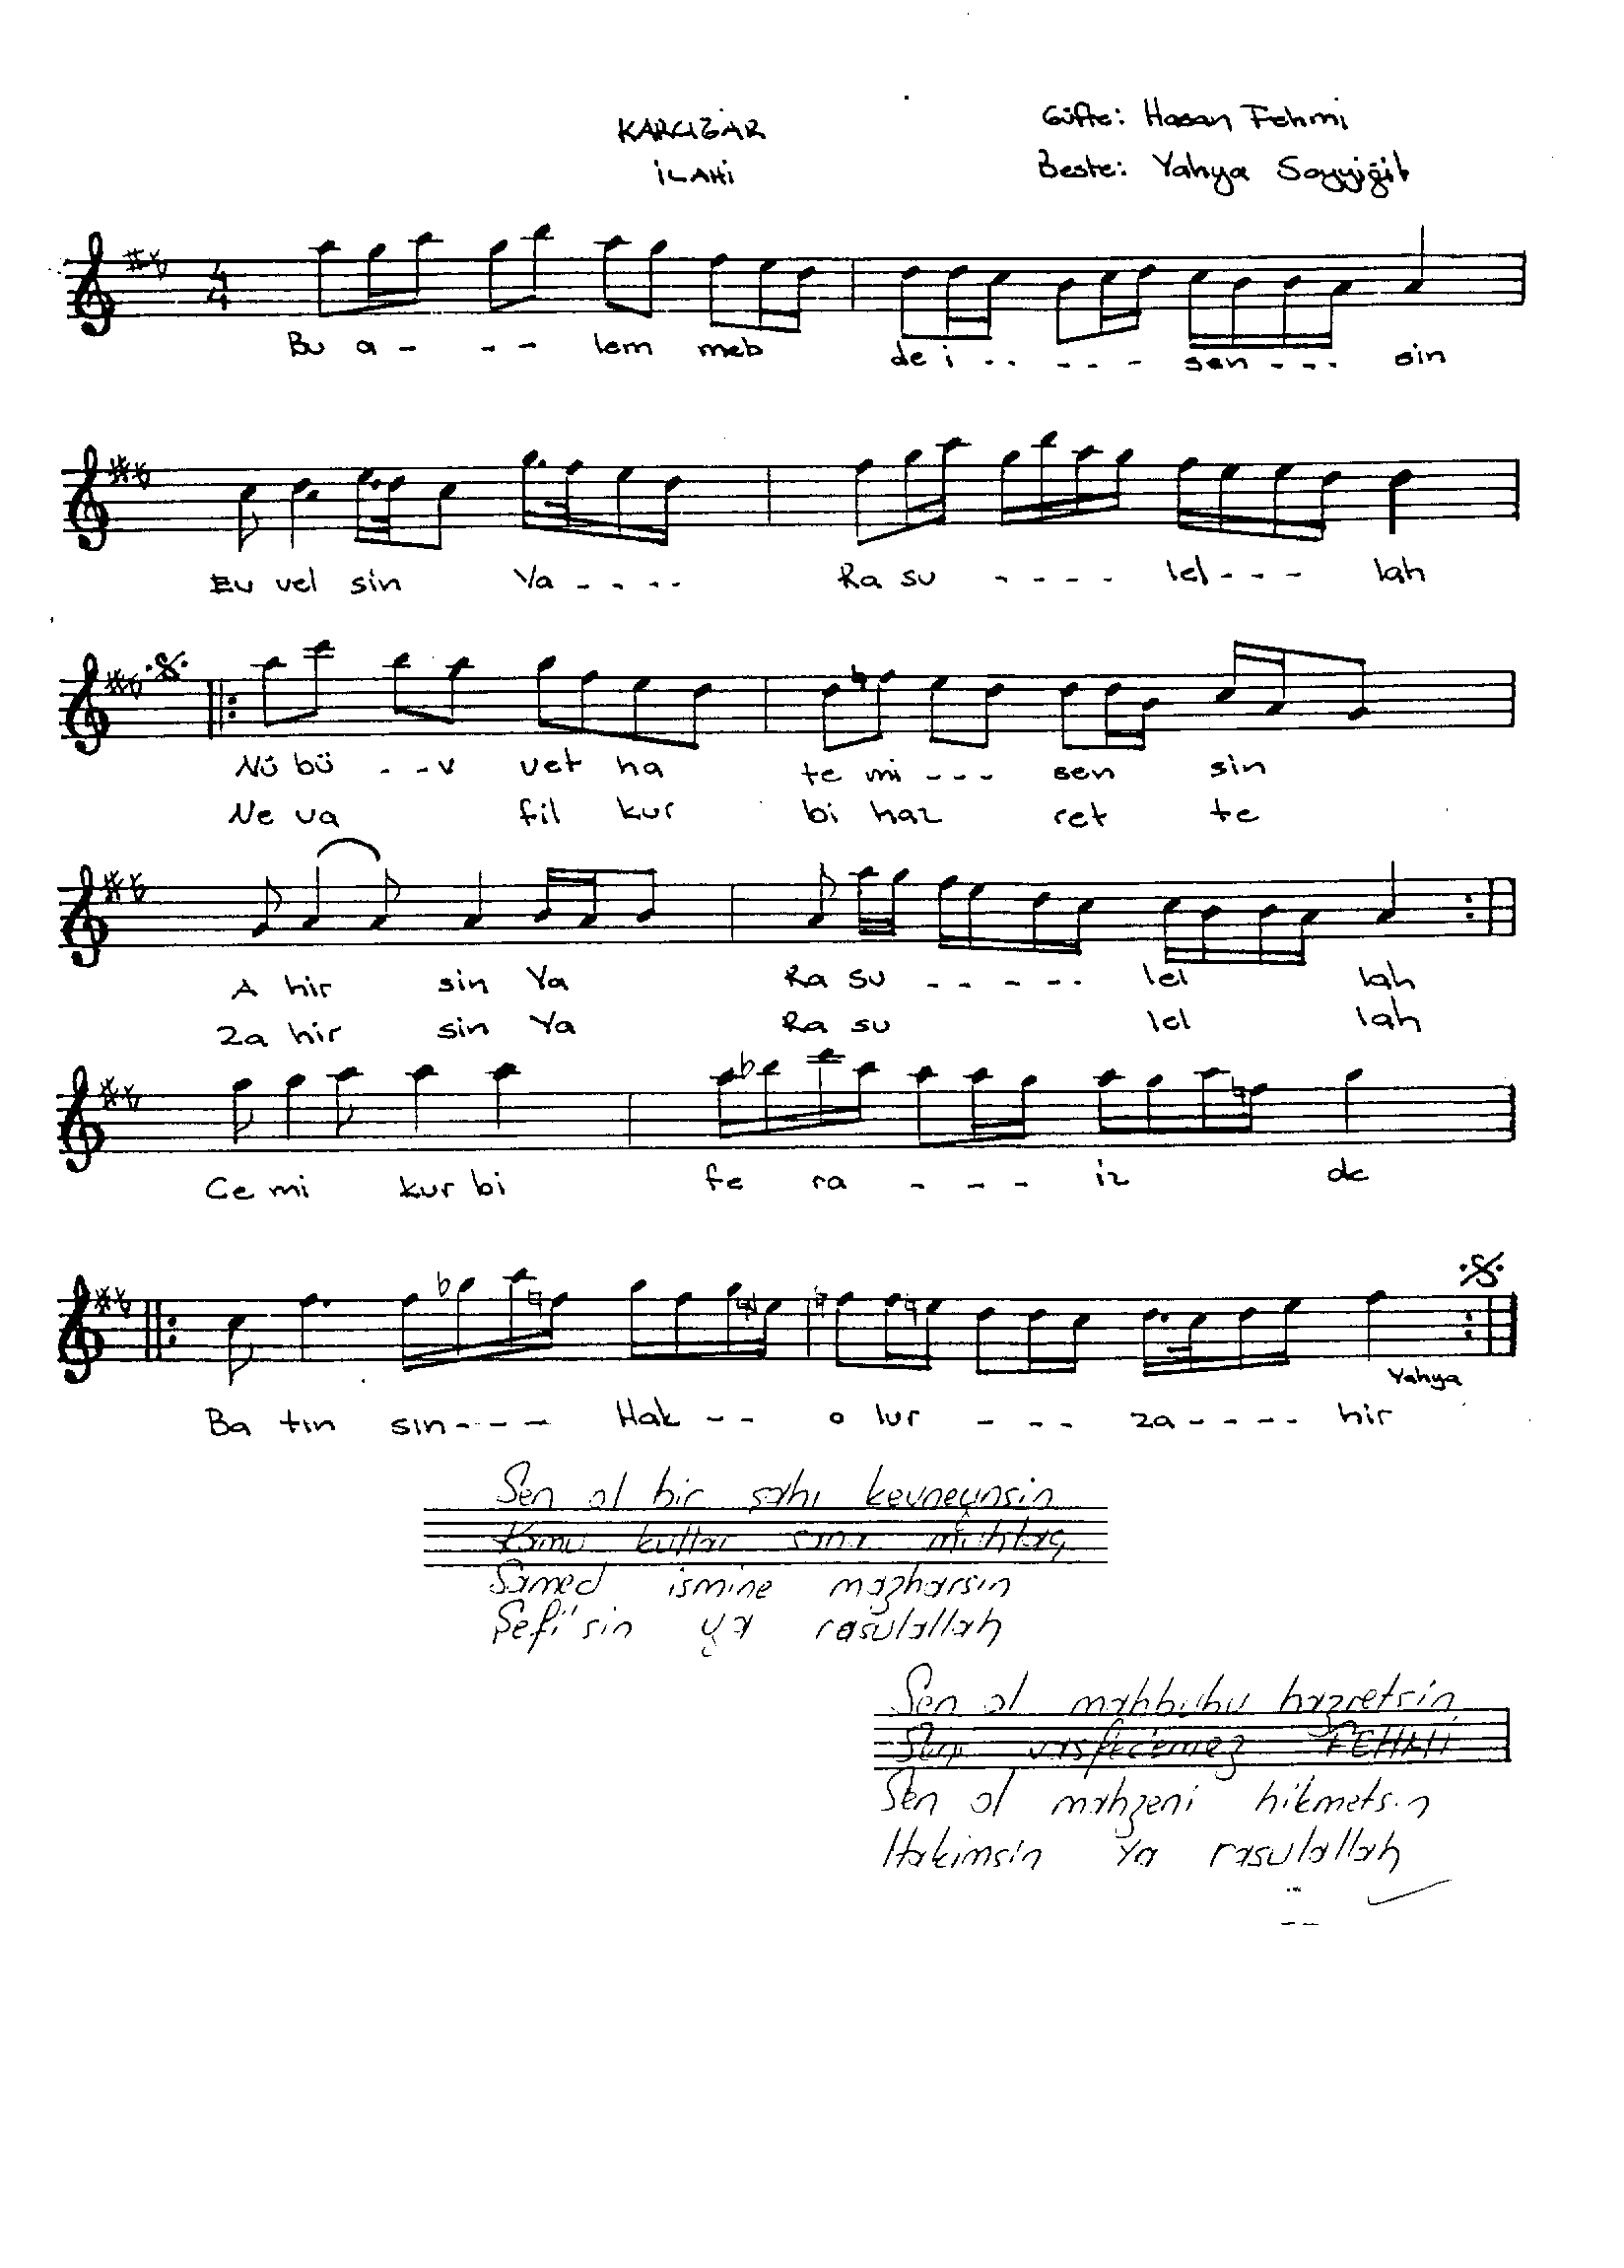 KARCIĞAR
İLAHİ
Güfte: Hasan Fehmi
Beste: Yahya Soyyiğit
4
4
Bu a - - - lem meb de i - - - - - sen - - - sin
Ev vel sin Ya - - - - Ra su - - - - lel - - - lah
Nü bü - - v vet ha te mi - - - sen sin
Ne va fil kur bi haz ret te
A hir sin Ya Ra su - - - - - lel lah
Za hir sin Ya Ra su lel lah
Ce mi kur bi fe ra - - - iz de
Yahya
Ba tın sin - - - - Hak - - o lur - - - za - - - - hir
Sen ol bir şahı kevneynsin
Kamu kullar sana mühtaç
Samed ismine mazharsın
Şefi'sin ya rasulallah
Sen ol mahbubu hazretsin
Seni vasfedemez FEHMİ
Sen ol mahzeni hikmetsin
Hakimsin Ya rasulallah